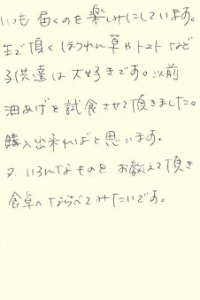 いつも届くのを楽しみにしています。
生で頂くほうれん草やトマトなど
子供達は大好きです。以前
油あげを試食させて頂きました。
購入出来ればと思います。
又、いろんなものをお教えて頂き
食卓へならべてみたいです。